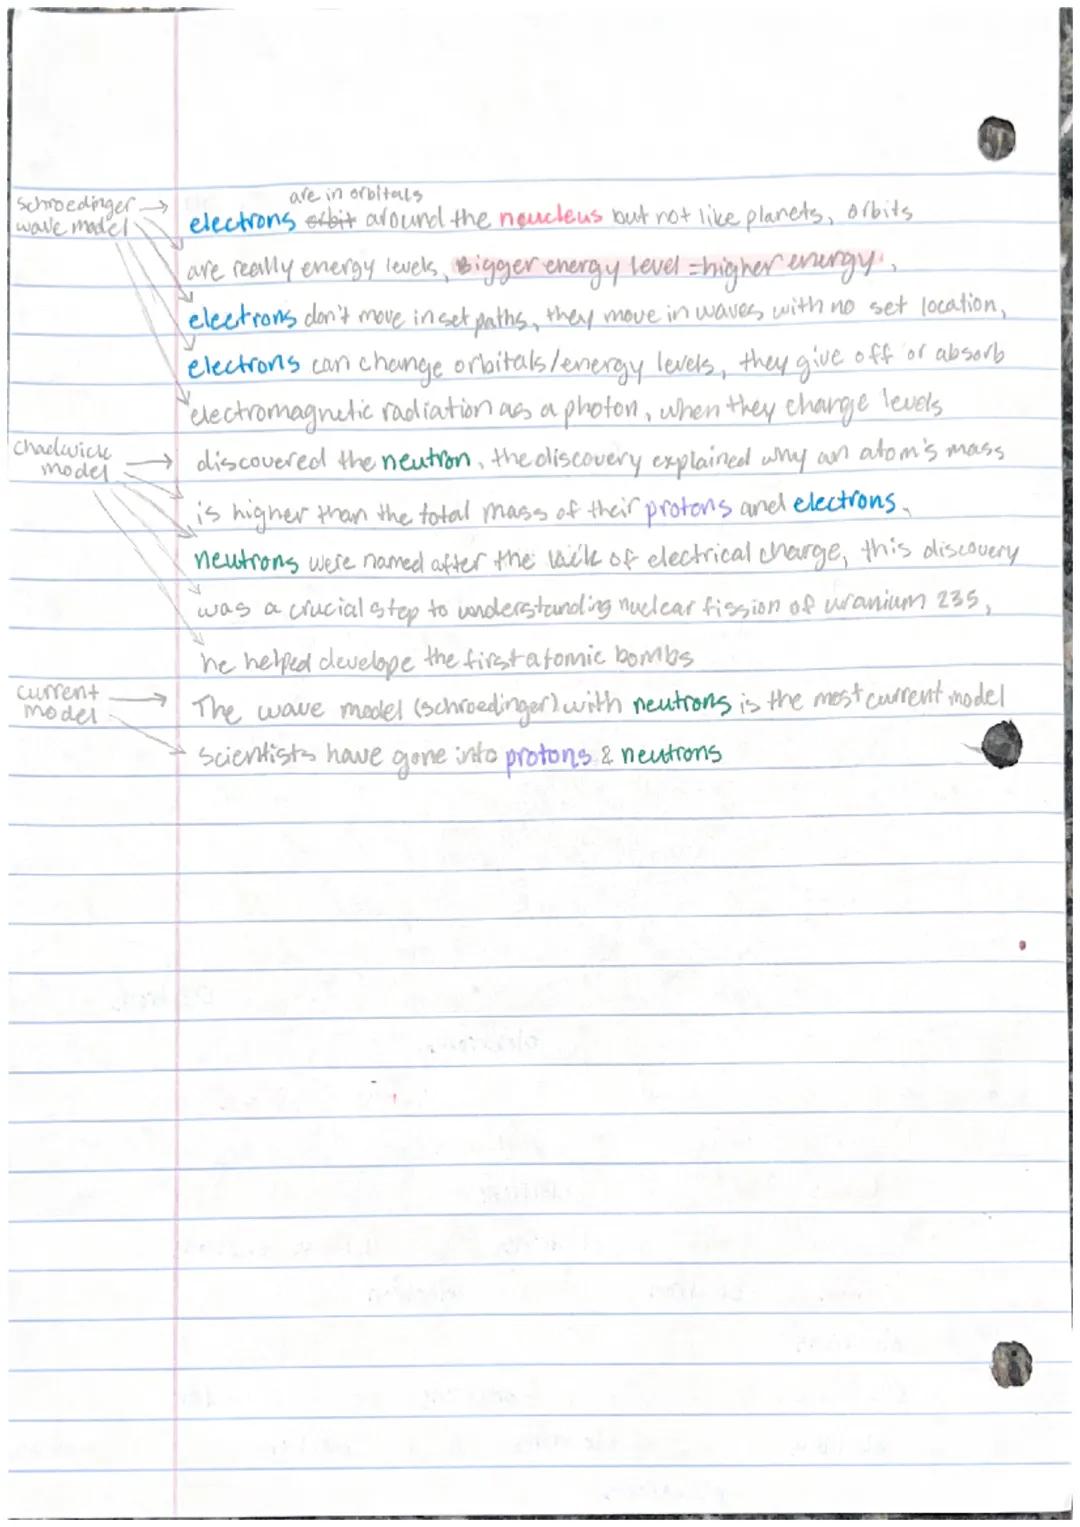 schroedinger
wave model
are in orbitals
electrons orbit around the neucleus but not like planets, orbits
are really energy levels, Bigger energy level = higher energy,
electrons don't move in set paths, they move in waves with no set location,
electrons can change orbitals/energy levels, they give off or absorb
electromagnetic radiation as a photon, when they change levels
chadwick
model
discovered the neutron, the discovery explained why an atom's mass
is higher than the total mass of their protons and electrons,
neutrons were named after the lack of electrical charge, this discovery
was a crucial step to understanding nuclear fission of uranium 235,
he helped develope the first atomic bombs
current
model
The wave model (schroedinger) with neutrons is the most current model
scientists have gone into protons & neutrons